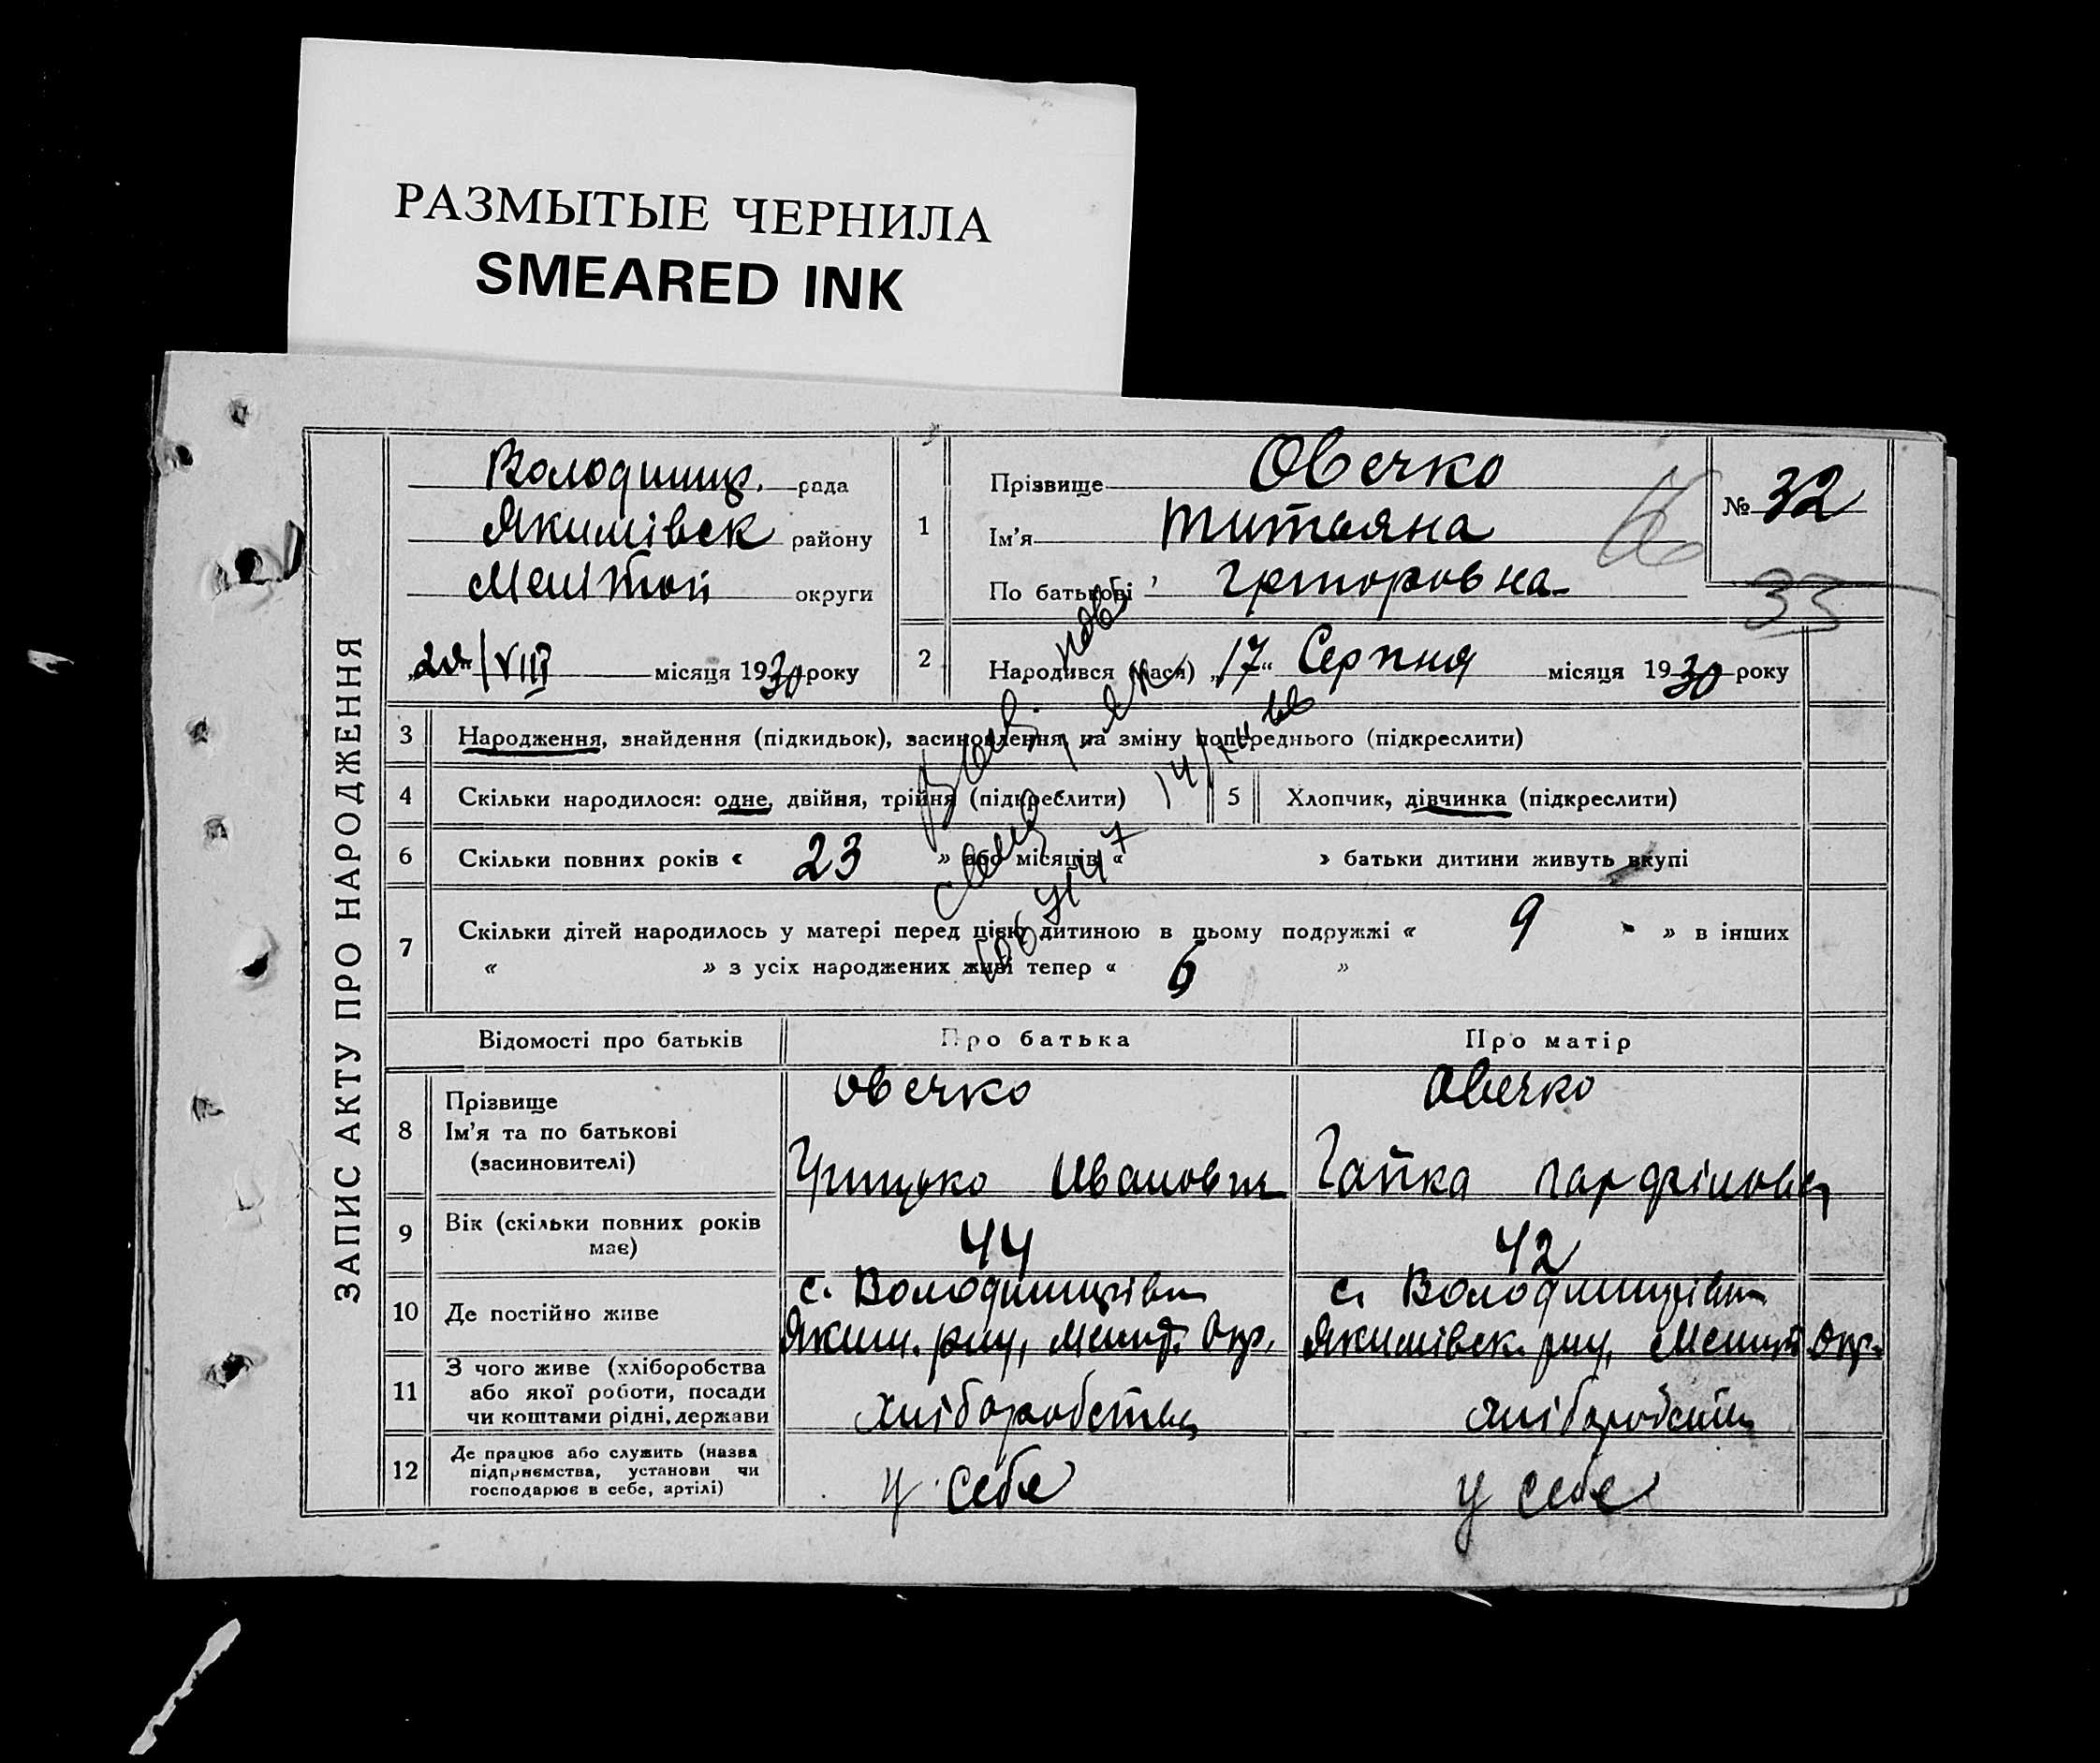 РАЗМЫТЫЕ ЧЕРНИЛА
SMEARED INK
ЗАПИС АКТУ ПРО НАРОДЖЕННЯ
рада
Якимівск району
округи
/VIII місяця 1930 року
1
Прізвище Овечко
Ім'я Титьяна
По батькові
№ 32
33
2
Народився (лася) „17“ Серпня місяця 1930 року
3 Народження, знайдення (підкидьок), засиновлення, на зміну попереднього (підкреслити)
4 Скільки народилося: одне, двійня, трійня (підкреслити)
5 Хлопчик, дівчинка (підкреслити)
6 Скільки повних років « 23 » або місяців « » батьки дитини живуть вкупі
7 Скільки дітей народилось у матері перед цією дитиною в цьому подружжі « 9 » в інших
« » з усіх народжених живі тепер « 6 »
Відомості про батьків
Про батька
Про матір
8
Прізвище
Ім'я та по батькові
(засиновителі)
Овечко
Грицько Иванович
Овечко
Гапка
9
Вік (скільки повних років
має)
44
42
10 Де постійно живе
с.
с.
11
З чого живе (хліборобства
або якої роботи, посади
чи коштами рідні, держави
хліборобства
хліборобства
12
Де працює або служить (назва
підприємства, установи чи
господарює в себе, артілі)
у себе
у себе